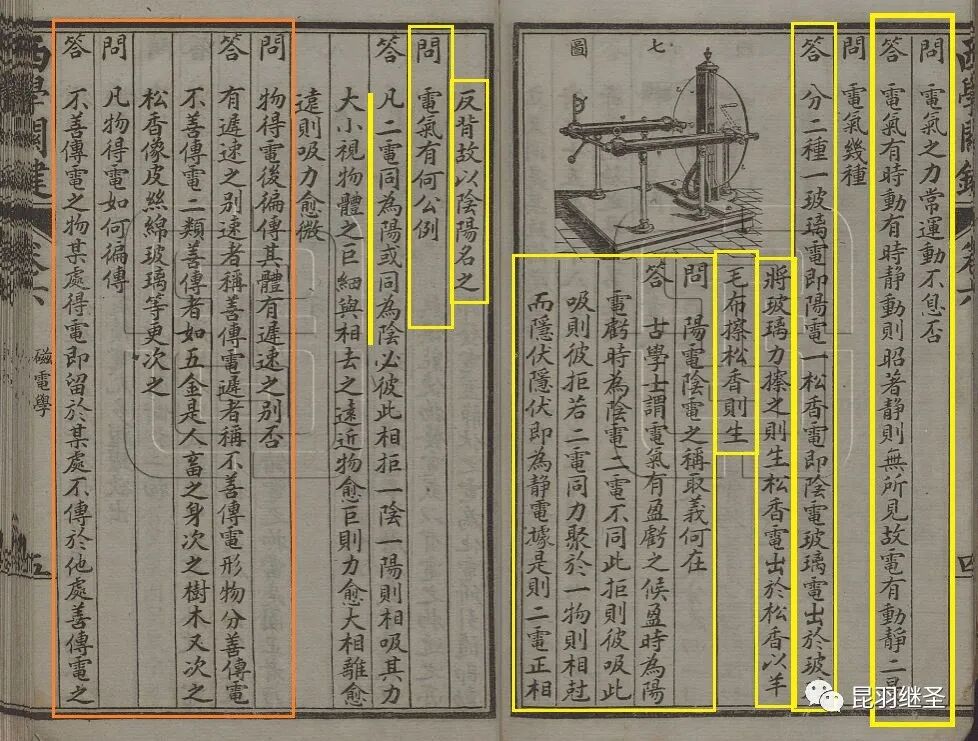 問　電氣之力常運動不息否
答　電氣有時動有時靜動則昭著靜則無所見故電有動靜二
問　電氣幾種
答　分二種一玻璃電即陽電一松香電即陰電玻璃電出於玻
將玻璃力擦之則生松香電出於松香以羊
毛布擦松香則生
問　陽電陰電之稱取義何在
答　古學士謂電氣有盈虧之候盈時為陽
電虧時為陰電二電不同此拒則彼吸此
吸則彼拒若二電同力聚於一物則相尅
而隱伏隱伏即為靜電據是則二電正相
七
圖
四
反背故以陰陽名之
問　電氣有何公例
答　凡二電同為陽或同為陰必彼此相拒一陰一陽則相吸其力
大小視物體之巨細與相去之遠近物愈巨則力愈大相離愈
遠則吸力愈微
問　物得電後徧傳其體有遲速之別否
答　有遲速之別速者稱善傳電遲者稱不善傳電形物分善傳電
不善傳電二類善傳者如五金是人畜之身次之樹木又次之
松香像皮絲綿玻璃等更次之
問　凡物得電如何徧傳
答　不善傳電之物某處得電即留於某處不傳於他處善傳電之
西學關鍵
卷六
磁電學
五
昆羽继圣